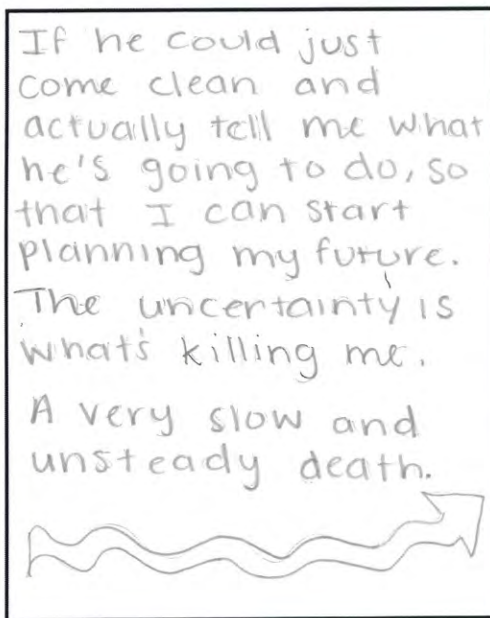 If he could just
come clean and
actually tell me what
he's going to do, so
that I can start
planning my future.
The uncertainty is
what's killing me.
A very slow and
unsteady death.